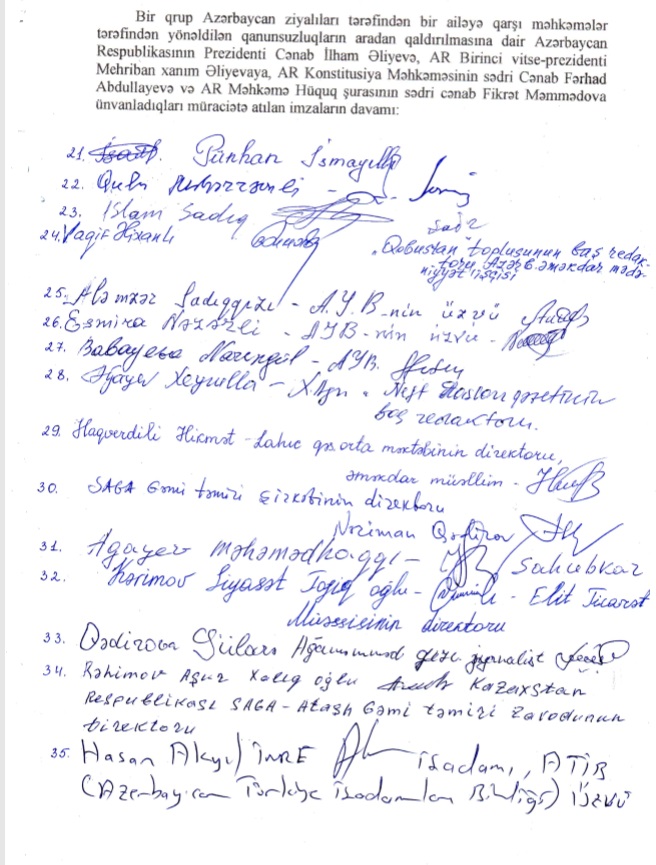 Bir qrup Azərbaycan ziyalıları tərəfindən bir ailəyə qarşı məhkəmələr
tərəfindən yönəldilən qanunsuzluqların aradan qaldırılmasına dair Azərbaycan
Respublikasının Prezidenti Cənab İlham Əliyevə, AR Birinci vitse-prezidenti
Mehriban xanım Əliyevaya, AR Konstitusiya Məhkəməsinin sədri Cənab Fərhad
Abdullayevə və AR Məhkəmə Hüquq şurasının sədri cənab Fikrət Məmmədova
ünvanladıqları müraciətə atılan imzaların davamı:
21. Pünhan İsmayıllı
22.
23. Islam Sadıq
24. Vaqif
"Qobustan" toplusunun baş redak-
toru, Azərb. əməkdar mədə-
niyyət işçisi
25. Ələmzər Sadıqqızı - A.Y.B-nin üzvü
26. Esmira - AYB-nin üzvü -
27. Babayeva Narıngül - AYB.
28. Xeyrulla - qəzetinin
baş redaktoru.
29. Haqverdili Hikmət - Lahıc qəs orta məktəbinin direktoru,
əməkdar müəllim -
30. SAGA Gəmi təmiri şirkətinin direktoru
Nəriman
31. Ağayev Məhəmədhaqqı - Sahibkar
32. Kərimov Siyasət Tofiq oğlu - - Elit Ticarət
Müəssisəinin direktoru
33. Qədirova Gülarə jurnalist
34. Rəhimov Aşur Xalıq oğlu Kazaxstan
Respublikası SAGA-Atash Gəmi təmiri Zavodunun
direktoru
35. Hasan Akyıl İMRE işadamı, ATİB
(Azerbaycan Türkiye İşadamları Birliği) Üzvü